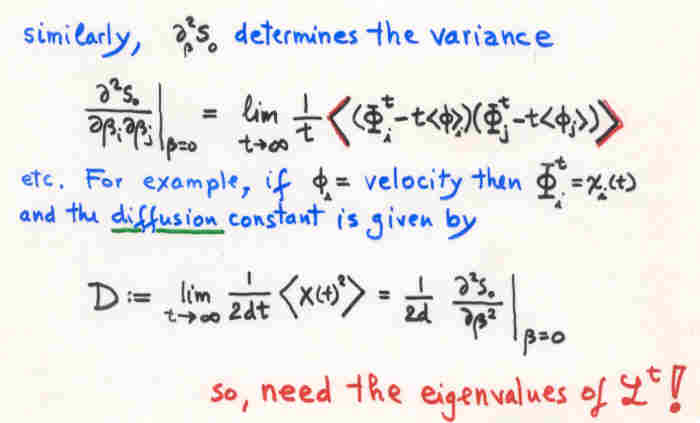 similarly, ∂²_β s₀ determines the variance
∂²s₀/∂βᵢ∂βⱼ |_β=0 = lim_{t→∞} 1/t ⟨(Φᵢᵗ - t⟨ϕᵢ⟩)(Φⱼᵗ - t⟨ϕⱼ⟩)⟩
etc. For example, if ϕᵢ = velocity then Φᵢᵗ = xᵢ(t)
and the diffusion constant is given by
D := lim_{t→∞} 1/2dt ⟨x(t)²⟩ = 1/2d ∂²s₀/∂β² |_β=0
so, need the eigenvalues of ℒᵗ!